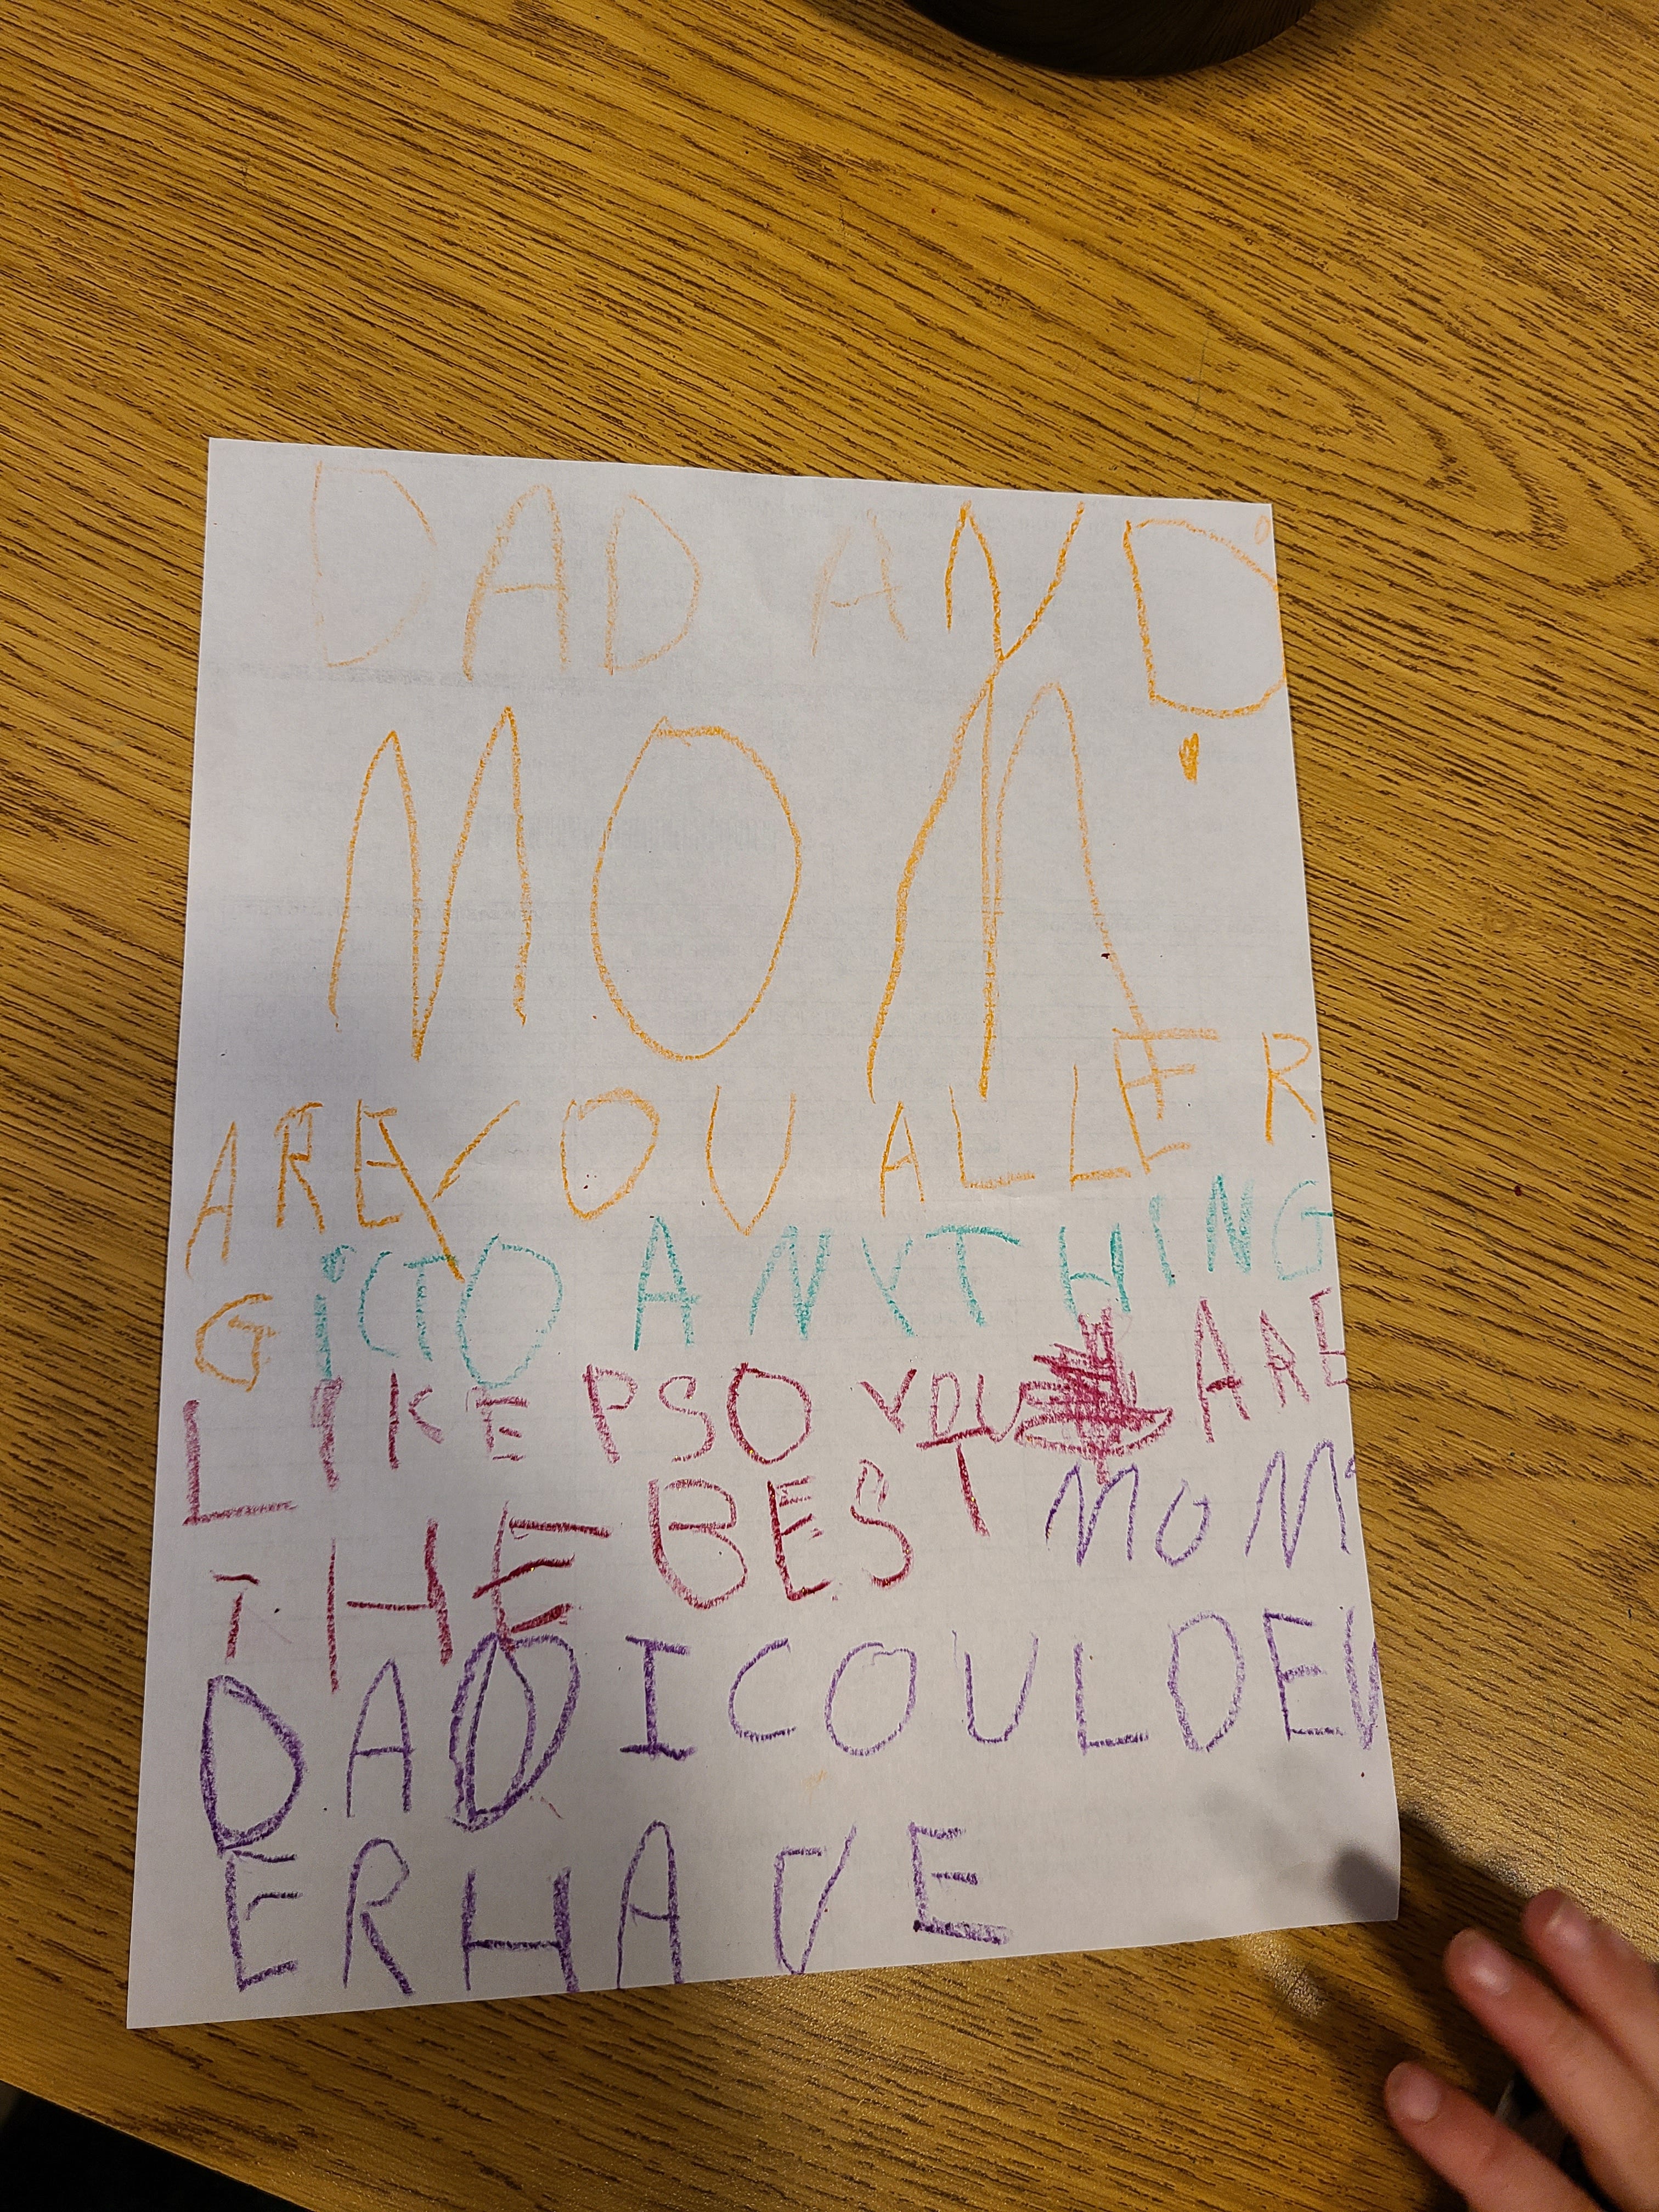 DAD AND
MOM
ARE YOU ALLER
GiC TO ANYTHiNG
LIKE PSO YOU ARE
THE BEST MOM
DAD I COULD EV
ER HAVE